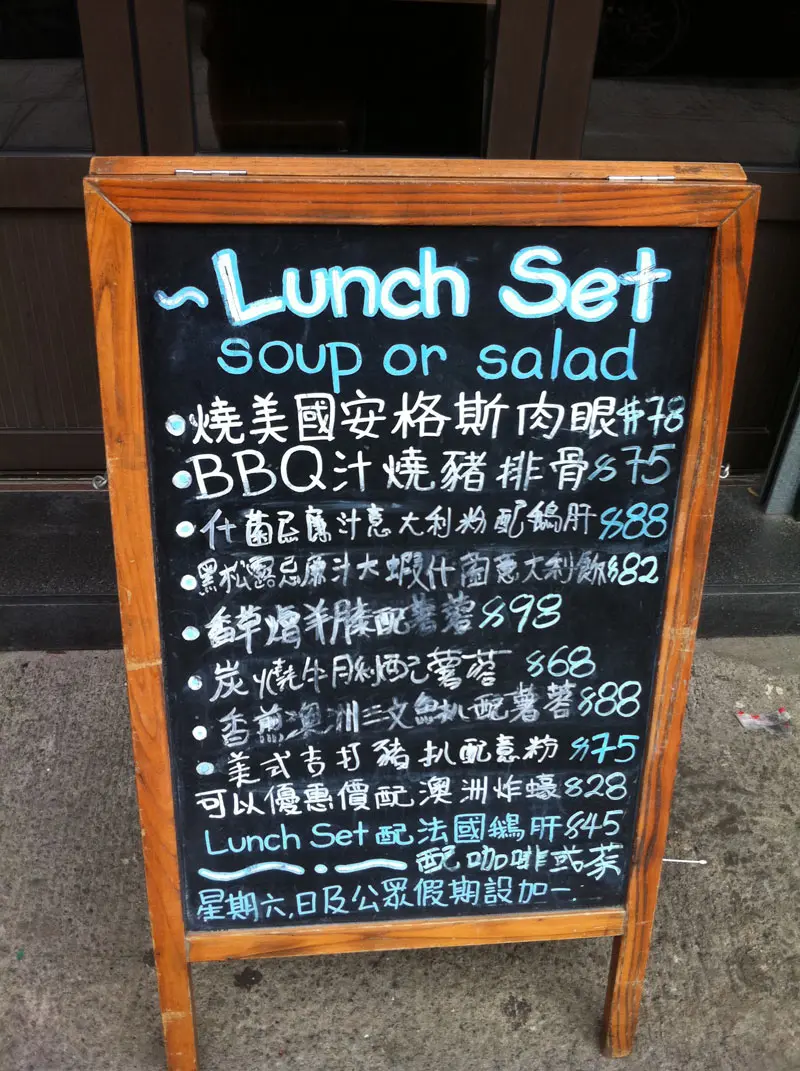 ~ Lunch Set
soup or salad
燒美國安格斯肉眼$78
BBQ汁燒豬排骨$75
什菌忌廉汁意大利粉配鵝肝$88
黑松露忌廉汁大蝦什菌意大利飯$82
香草燴羊膝配薯蓉$98
炭燒牛 配薯蓉 $68
香煎澳洲三文魚扒配薯蓉$88
美式吉打豬扒配意粉 $75
可以優惠價配澳洲炸蠔$28
Lunch Set配法國鵝肝$45
配咖啡或茶
星期六,日及公眾假期設加一.